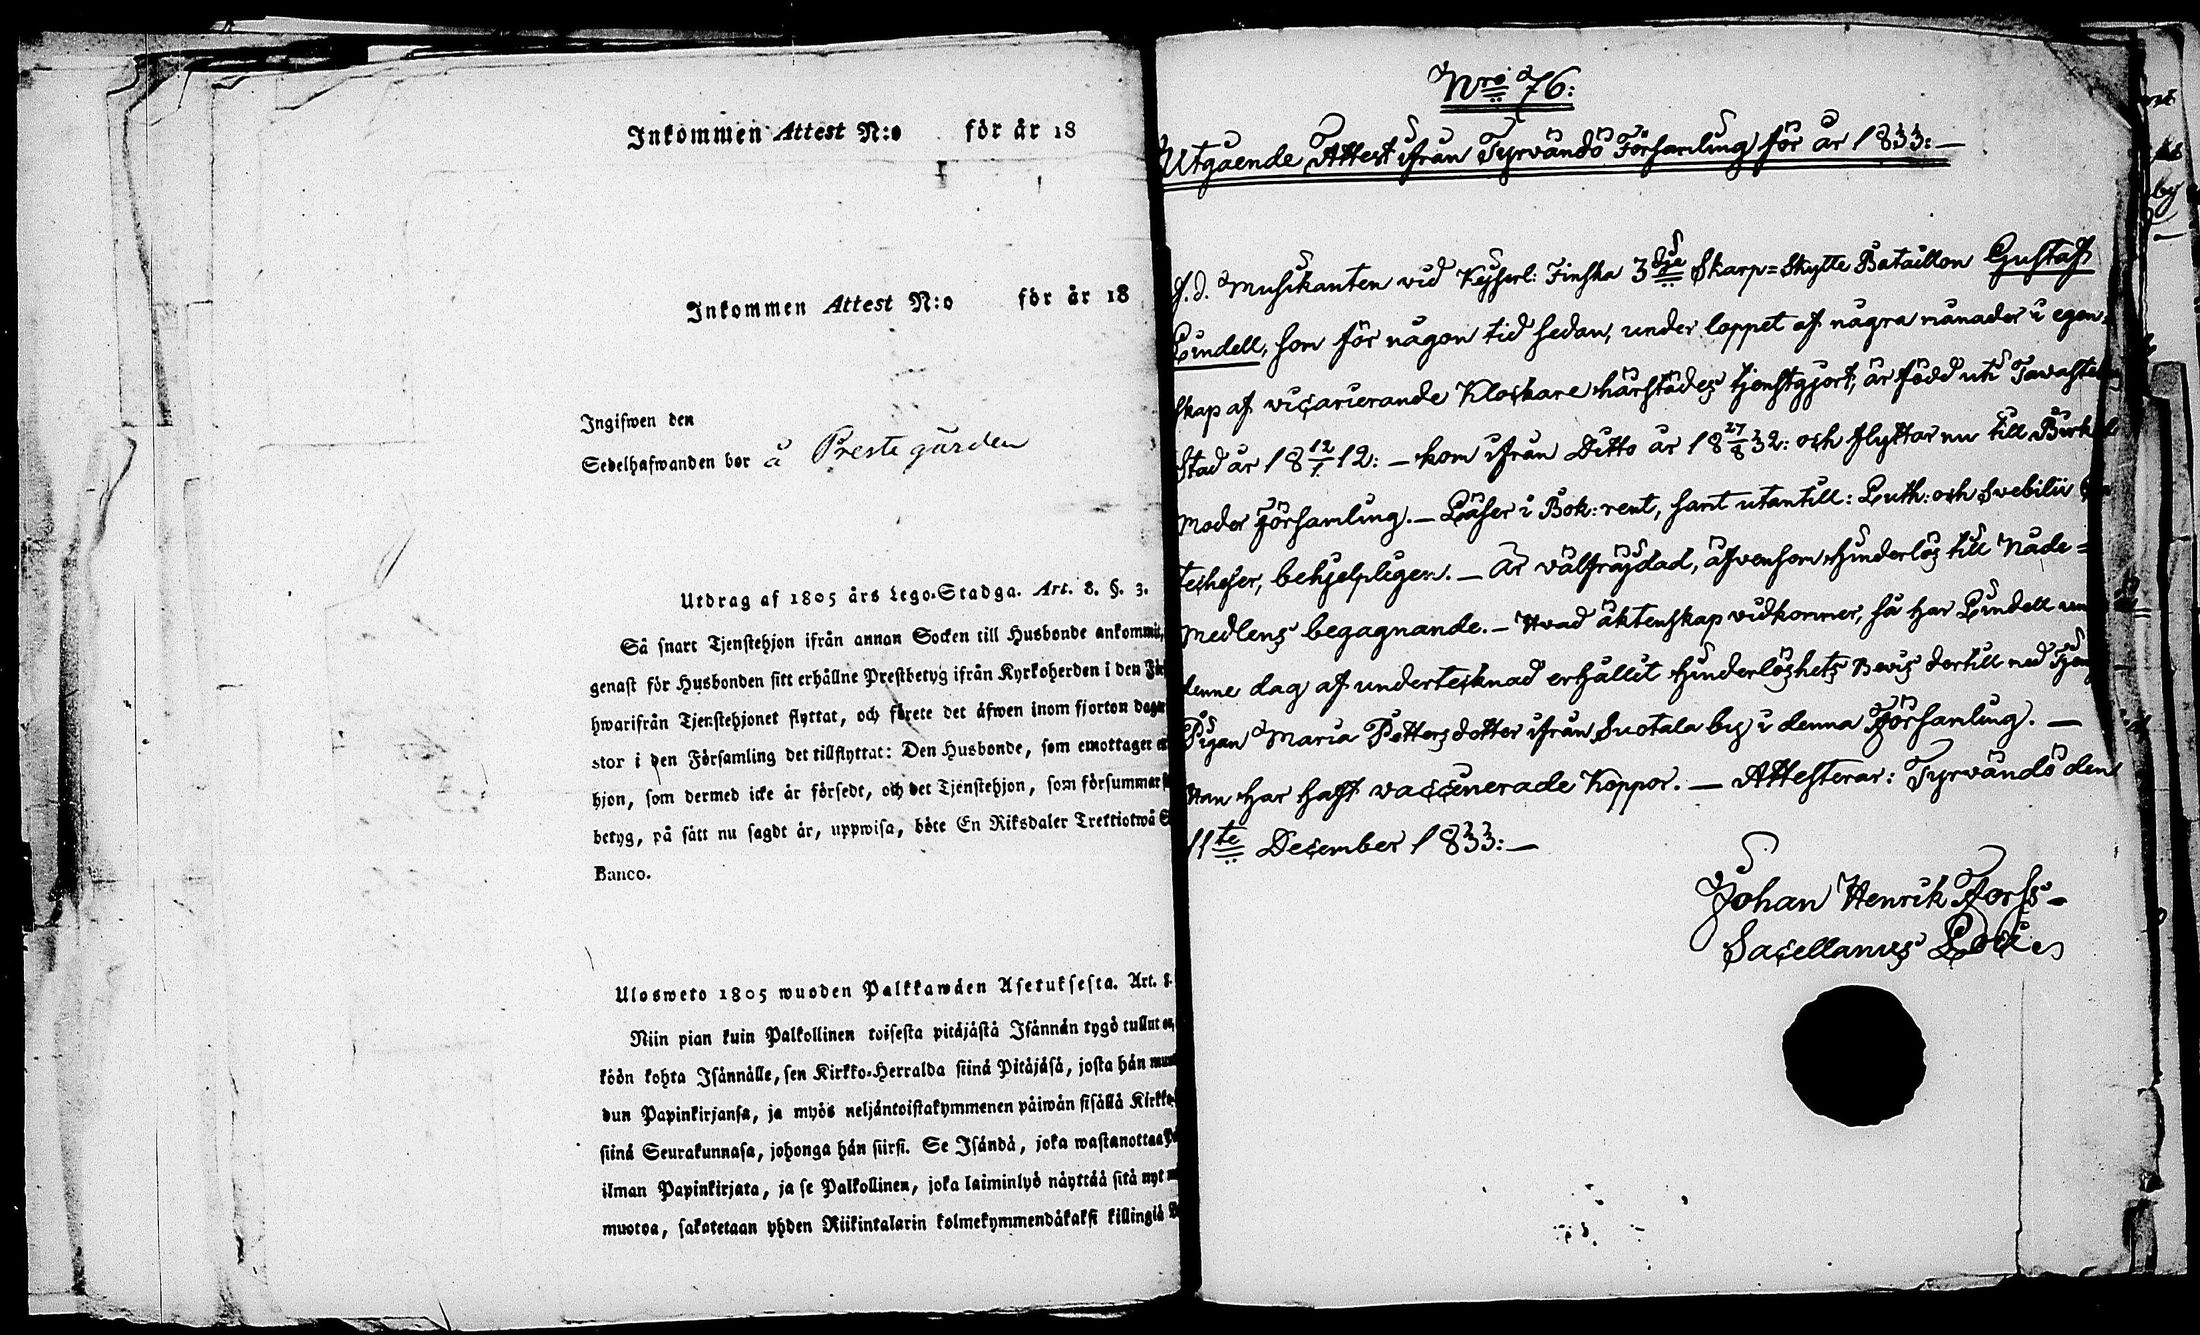 Inkommen Attest N:o för år 18
Inkommen Attest N:o för år 18
Ingifwen den
Sedelhafwanden bor å Prestegården
Utdrag af 1805 års Lego-Stadga. Art. 8. §. 3.
Så snart Tjenstehjon ifrån annan Socken till Husbonde ankommit,
genast för Husbonden sitt erhållne Prestbetyg ifrån Kyrkoherden i den
hwarifrån Tjenstehjonet flyttat, och förete det äfwen inom fjorton dagar
stor i den Församling det tillflyttat: Den Husbonde, som emottager
hjon, som dermed icke är försedt, och det Tjenstehjon, som försummar
betyg, på sätt nu sagdt är, uppwisa, böte En Riksdaler Trettiotwå
Banco.
Ulosweto 1805 wuoden Palkkawäen Asetuksesta. Art. 8.
Niin pian kuin Palkollinen toisesta pitäjästä Isännän tygö tullut on,
köön kohta Isännälle, sen Kirkko-Herralda siinä Pitäjäsä, josta hän
dun Papinkirjansa, ja myös neljäntoistakymmenen päiwän sisällä
siinä Seurakunnasa, johonga hän siirsi. Se Isändä, joka wastanottaa
ilman Papinkirjata, ja se Palkollinen, joka laiminlyö näyttää sitä nyt
muotoa, sakotetaan yhden Riikintalarin kolmekymmendäkaksi killingiä
Nro 76:
Utgående Attest ifrån Tyrvändö Församling för år 1833:—
f.d. Musikanten vid Kejserl: Finska 3dje Skarp=Skytte Bataillon Gustaf
Lindell, som för någon tid sedan, under loppet af några månader i egen=
skap af vicarierande Klockare härstädes tjenstgjort, är född uti Tavastehus
Stad år 18 12/1 12: — kom ifrån Ditto år 18 27/8 32: och flyttar nu till Birkala
Moder Församling. — Läser i Bok: rent, samt utantill: Luth: och Svebilii
techeser, behjelpligen. — Är välfräjdad, äfvensom hinderlös till Nåde=
Medlens begagnande. — Hvad äktenskap vidkommer, så har Lindell
denne dag af undertecknad erhållit Hinderlöshets Bevis dertill med
Pigan Maria Pettersdotter ifrån Suotala by i denna Församling. —
Han har haft vaccinerade Koppor. — Attesterar: Tyrvändö den
11te December 1833:—
Johan Henrik Forss=
Sacellanus Loci